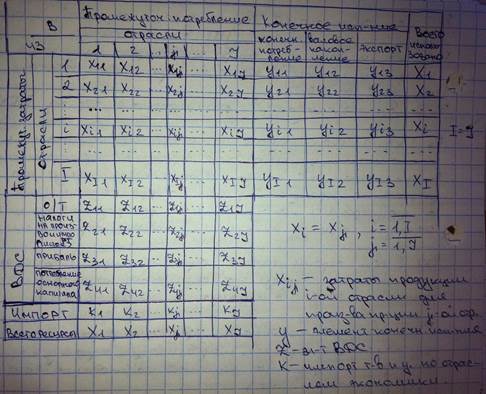 В Промежуточ. потребление Конечное исп-ние Всего использовано
из отрасли конечн. потребление валовое накопление экспорт
1 2 ... j ... J
Промежут. затраты
Отрасли
1 x11 x12 ... x1j ... x1J y11 y12 y13 X1
2 x21 x22 ... x2j ... x2J y21 y22 y23 X2
... ... ... ... ... ... ...
i xi1 xi2 ... xij ... xiJ yi1 yi2 yi3 Xi I=J
... ... ... ... ... ... ...
I xI1 xI2 ... xIj ... xIJ yI1 yI2 yI3 XI
ВДС
О/Т z11 z12 ... z1j ... z1J
налоги на произ-во z21 z22 ... z2j ... z2J
прибыль z31 z32 ... z3j ... z3J
потребление основного капитала z41 z42 ... z4j ... z4J
Импорт K1 K2 ... Kj ... KJ
Всего ресурсов X1 X2 ... Xj ... XJ
Xi = Xj , i = 1,I
j = 1,J
Xij – затраты продукции
i-ой отрасли для
произ-ва пр-ции j-ой отр.
y – элемент конечн. исп-ния
Z – эл-т ВДС
K – импорт т-в и у. по отраслям экономики